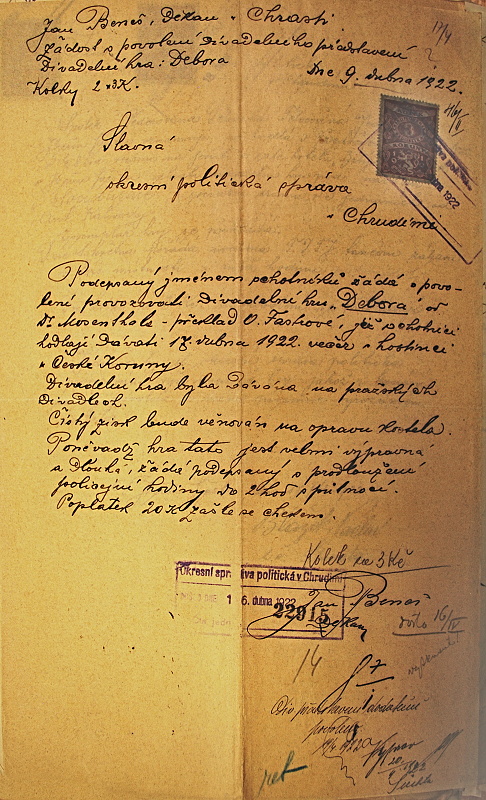 Jan Beneš, Děkan v Chrasti
17/4
žádost s povolení divadelního představení
Divadelní hra: Debora
Dne 9. dubna 1922.
Kolky 2 x 3K.
Slavná
okresní politická správa
v Chrudimi
1922
Podepsaný jménem ochotníků žádá o povo-
lení provozovati divadelní hru „Debora“, od
Dr Mosenthala - překlad O. Fastrové, již ochotníci
hodlají dávati 17. dubna 1922. večer v hostinci
u České Koruny.
Divadelní hra byla dávána na pražských
divadlech.
Čistý zisk bude věnován na opravu kostela.
Poněvadž hra tato jest velmi výpravná
a dlouhá, žádá podepsaný o prodloužení
policejní hodiny do 2 hod s půlnoci.
Poplatek 20 K zašle se chekem.
Kolek za 3 Kč
Okresní správa politická v Chrudimi
16. dubna 1922
22915
Jan Beneš
děkan
došlo 16/IV
14